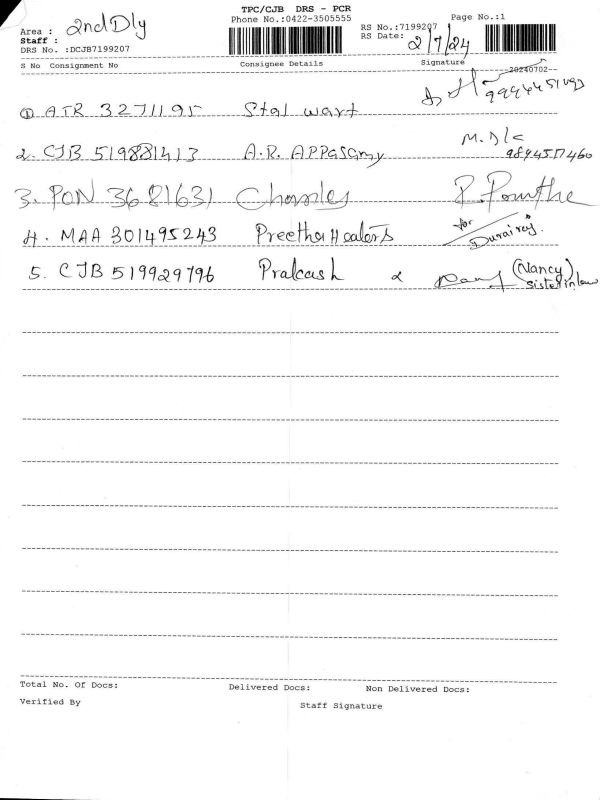 TPC/CJB DRS - PCR
Phone No.:0422-3505555
Page No.:1
Area : 2nd Dly
Staff :
DRS No. :DCJB7199207
RS No.:7199207
RS Date: 2/7/24
S No Consignment No Consignee Details Signature
--20240702--
① ATR 3271195 Stal wart
2. CJB 519881413 A.R. APPasamy M. D/c
9894517460
3. PON 3681631 Charles
4. MAA 301495243 Preetha Healers for Durairaj.
5. CJB 519929796 Prakash (Nancy)
sister in law
Total No. Of Docs: Delivered Docs: Non Delivered Docs:
Verified By Staff Signature